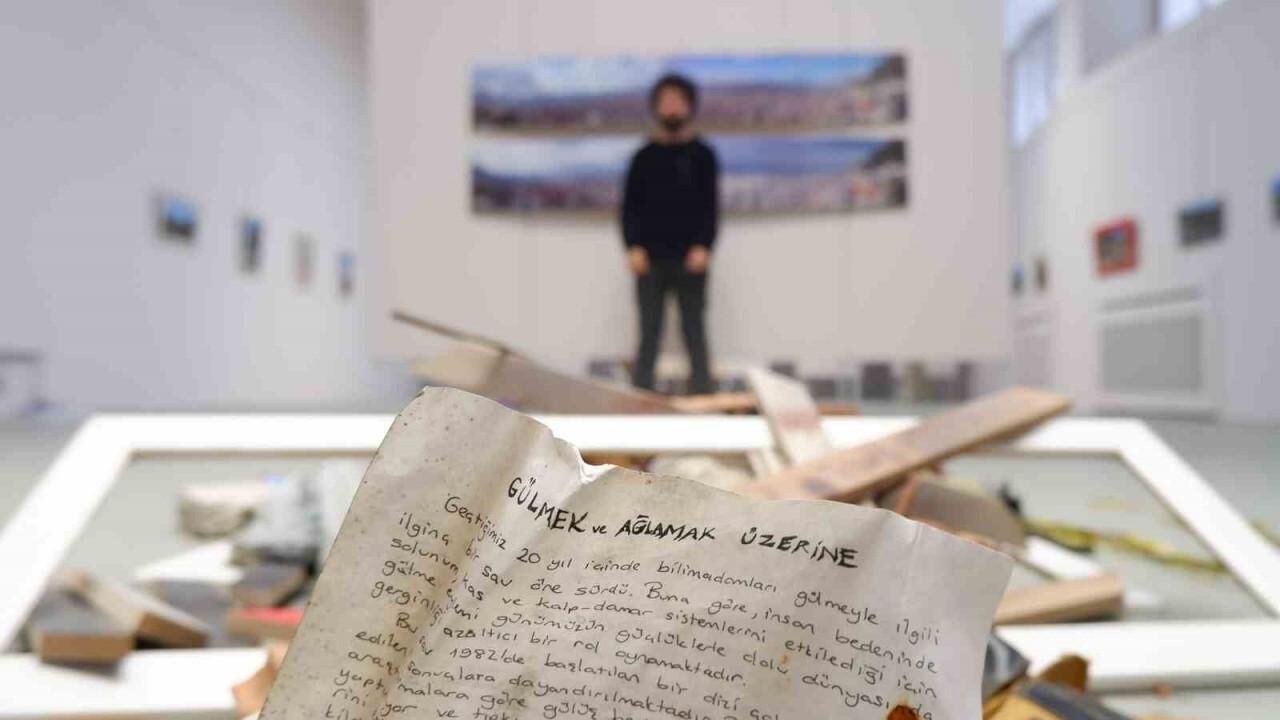 GÜLMEK ve AĞLAMAK ÜZERİNE
Geçtiğimiz 20 yıl içinde bilimadamları gülmeyle ilgili
ilginç bir sav öne sürdü. Buna göre, insan bedeninde
solunum, kas ve kalp-damar sistemlerini etkilediği için
gülme eylemi günümüzün güçlüklerle dolu dünyasında
gerginliği azaltıcı bir rol oynamaktadır.
Bu sav 1982'de başlatılan bir dizi
edilen sonuçlara dayandırılmaktadır.
araş malara göre gülüş
yapt yor ve
rini